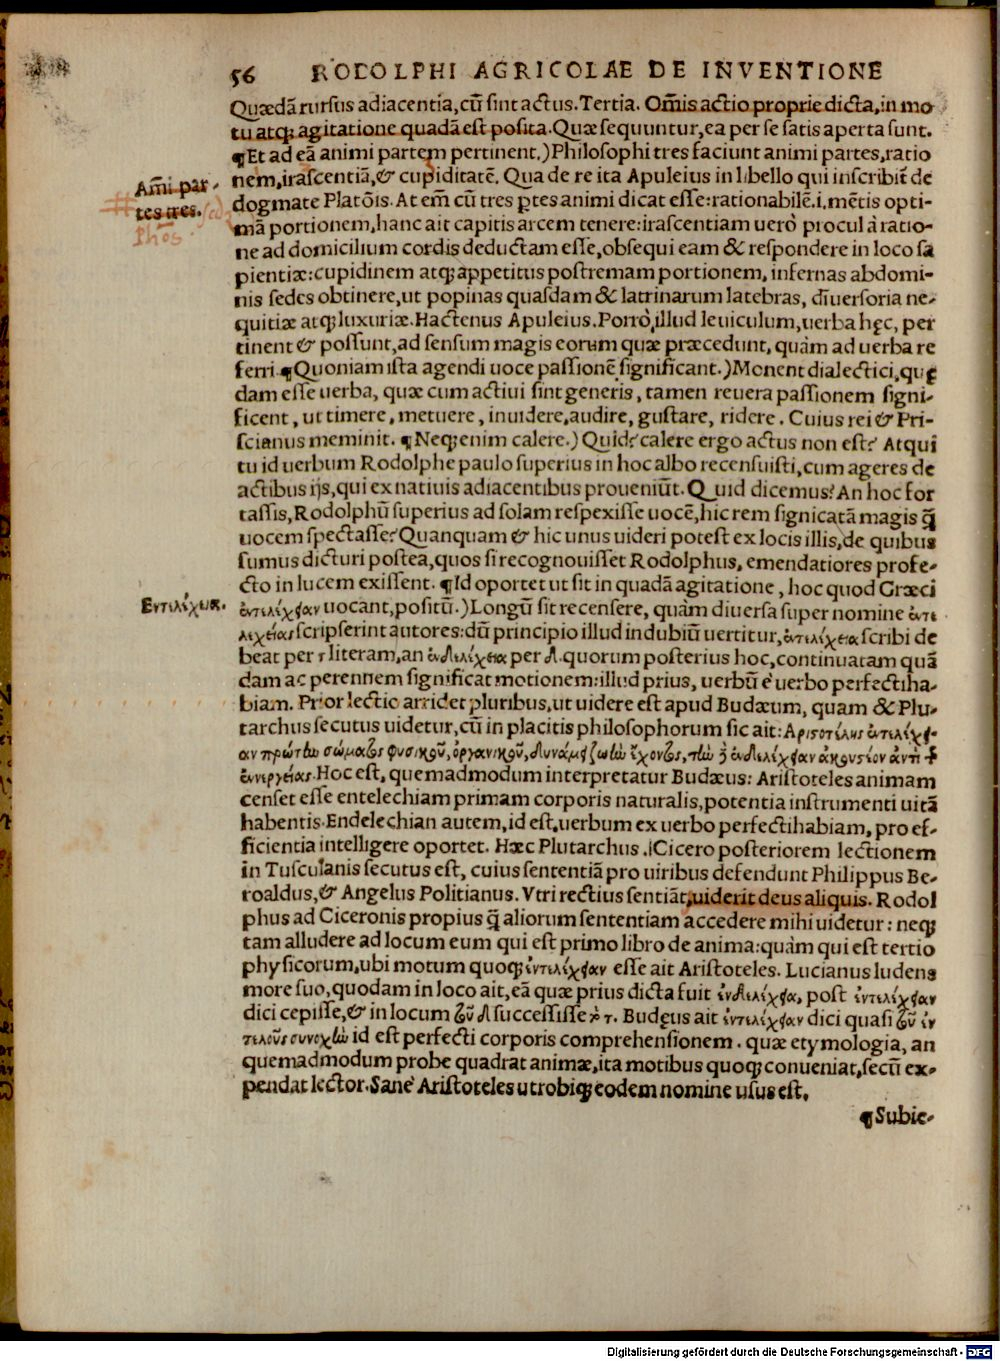 56 RODOLPHI AGRICOLAE DE INVENTIONE
Quædã rursus adiacentia,cũ sint actus.Tertia. Om̃is actio proprie dicta,in mo
tu atq; agitatione quadã est posita.Quæ sequuntur,ea per se satis aperta sunt.
¶Et ad eã animi partem pertinent.)Philosophi tres faciunt animi partes,ratio
nem,irascentiã,& cupiditatẽ. Qua de re ita Apuleius in libello qui inscribit̃ de
Am̃i par-
tes tres.
dogmate Platõis. At em̃ cũ tres ꝑtes animi dicat esse:rationabilẽ.i.mẽtis opti-
mã portionem,hanc ait capitis arcem tenere:irascentiam uerò procul à ratio-
ne ad domicilium cordis deductam esse,obsequi eam & respondere in loco sa
pientiæ:cupidinem atq; appetitus postremam portionem, infernas abdomi-
nis sedes obtinere,ut popinas quasdam & latrinarum latebras, diuersoria ne-
quitiæ atq; luxuriæ.Hactenus Apuleius.Porrò,illud leuiculum,uerba hęc, per
tinent & possunt,ad sensum magis eorum quæ præcedunt, quàm ad uerba re
ferri.¶Quoniam ista agendi uoce passionẽ significant.)Monent dialectici,quę
dam esse uerba, quæ cum actiui sint generis, tamen reuera passionem signi-
ficent, ut timere, metuere, inuidere,audire, gustare, ridere. Cuius rei & Pri-
scianus meminit. ¶Neq; enim calere.) Quid?calere ergo actus non est? Atqui
tu id uerbum Rodolphe paulo superius in hoc albo recensuisti,cum ageres de
actibus ijs,qui ex natiuis adiacentibus proueniũt.Quid dicemus?An hoc for
tassis,Rodolphũ superius ad solam respexisse uocẽ,hic rem signicatã magis q̃
uocem spectasse?Quanquam & hic unus uideri potest ex locis illis,de quibus
sumus dicturi postea,quos si recognouisset Rodolphus, emendatiores profe-
cto in lucem exissent. ¶Id oportet ut sit in quadã agitatione, hoc quod Græci
Εντελέχεια.
ἐντελέχειαν uocant,positũ.)Longũ sit recensere, quàm diuersa super nomine ἐντε
λεχείας scripserint autores:dũ principio illud in dubiũ uertitur,ἐντελέχεια scribi de
beat per τ literam,an ἐνδελέχεια per δ.quorum posterius hoc,continuatam quã
dam ac perennem significat motionem:illud prius, uerbũ è uerbo perfectiha-
biam. Prior lectio arridet pluribus,ut uidere est apud Budæum, quam & Plu-
tarchus secutus uidetur,cũ in placitis philosophorum sic ait: Αριστοτέλης ἐντελέχει-
αν πρώτην σώματος φυσικοῦ, ὀργανικοῦ, δυνάμει ζωὴν ἔχοντος, τὴν ἢ ἐνδελέχειαν ἀκουστέον ἀντὶ τ
ἐνεργείας.Hoc est, quemadmodum interpretatur Budæus: Aristoteles animam
censet esse entelechiam primam corporis naturalis,potentia instrumenti uitã
habentis.Endelechian autem,id est,uerbum ex uerbo perfectihabiam, pro ef-
ficientia intelligere oportet. Hæc Plutarchus.|Cicero posteriorem lectionem
in Tusculanis secutus est, cuius sententiã pro uiribus defendunt Philippus Be-
roaldus,& Angelus Politianus. Vtri rectius sentiãt,uiderit deus aliquis. Rodol
phus ad Ciceronis propius q̃ aliorum sententiam accedere mihi uidetur: neq;
tam alludere ad locum eum qui est primo libro de anima:quàm qui est tertio
physicorum,ubi motum quoq; ἐντελέχειαν esse ait Aristoteles. Lucianus ludens
more suo,quodam in loco ait,eã quæ prius dicta fuit ἐνδελέχεια, post ἐντελέχειαν
dici cepisse,& in locum τοῦ δ successisse τὸ τ. Budęus ait ἐντελέχειαν dici quasi τοῦ ἐν
τελοῦς συνοχὴν id est perfecti corporis comprehensionem. quæ etymologia, an
quemadmodum probe quadrat animæ,ita motibus quoq; conueniat,secũ ex-
pendat lector.Sanè Aristoteles utrobiq; eodem nomine usus est.
¶Subie-
Digitalisierung gefördert durch die Deutsche Forschungsgemeinschaft - DFG